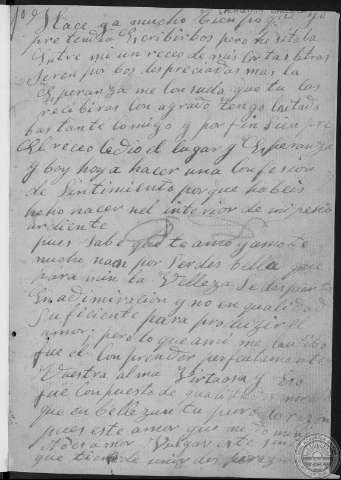 Hace ya mucho tiempo que yo
pretendia Escribirbos pero me estaba
Entre mi un receo de mis cortas letras
Seren por bos despreciadas mas la
Esperanza me consuela que tu las
recibiras con agrado tengo luitado
bastante comigo y por fin sienpre
El receo cedio el lugar y Esperanza
y boy hoy a hacer una Confesion
de Sintimiento porque habeis
hecho nacer nel interior de mi pecho
ardiente
pues sabe que te amo y amote
mucho naon por Serdes bella que
para min la Velleza se despierta
En adimiracion y no en qualidad
Suficiente para produzir el
amor; pero lo que a mi me
fue el conprender perfectamente
Vuestra alma Virtuosa y Eso
fue Conpuesto de qualidades
que en bellezan tu puro
pues este amor que me domina
el des amor Vulgar este
que tiene de unir dos